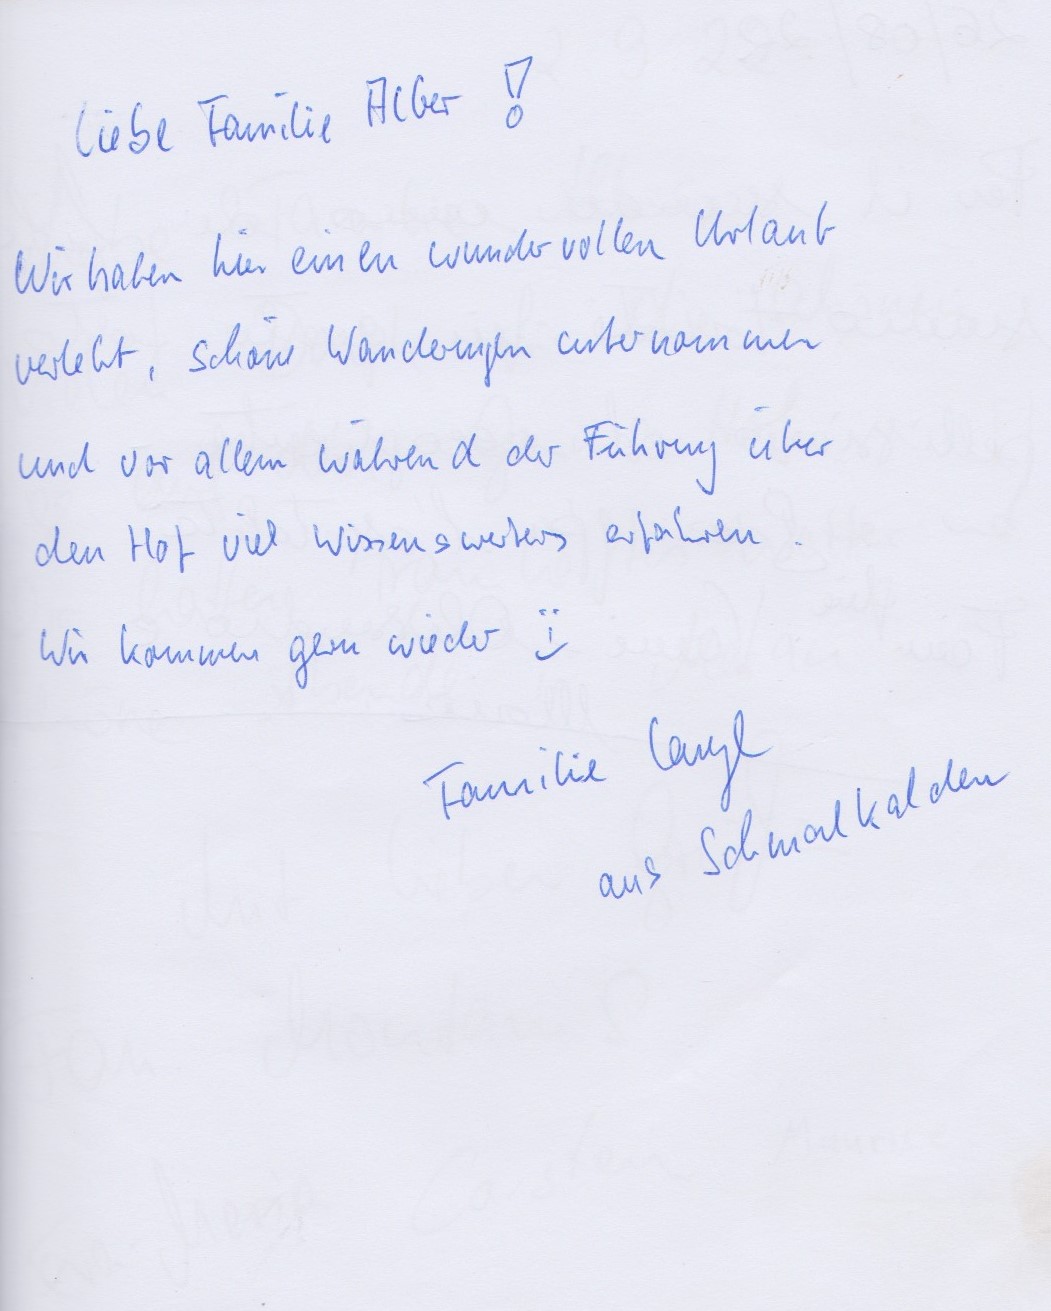 Liebe Familie Alber!
Wir haben hier einen wundervollen Urlaub
verlebt, schöne Wanderungen unternommen
und vor allem während der Führung über
den Hof viel Wissenswertes erfahren.
Wir kommen gern wieder
Familie
aus Schmalkalden